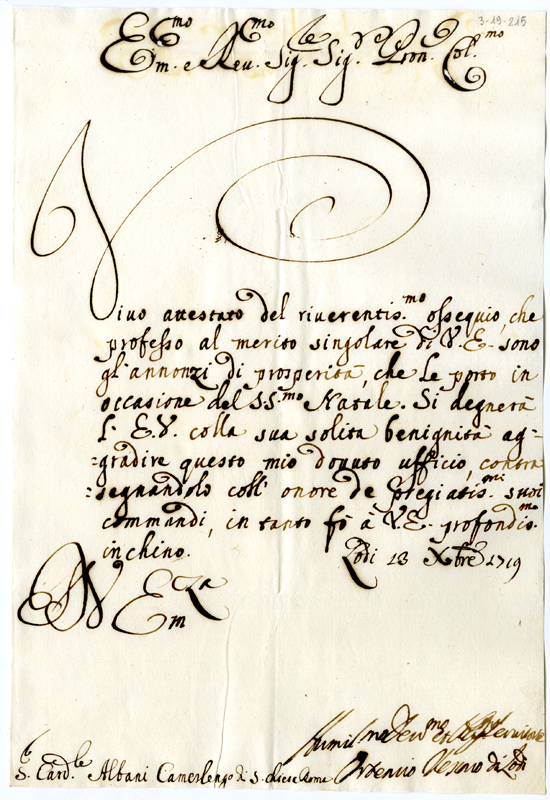 3-19-215
Em.mo e Reu.mo Sig.re Sig.r Pron. Col.mo
Viuo attestato del riuerentis.mo ossequio, che
professo al merito singolare di V. E. sono
gl'annonzi di prosperità, che Le porto in
occasione del SS.mo Natale. Si degnerà
l' E.V. colla sua solita benignità ag=
=gradire questo mio douuto ufficio, contra
=segnandolo coll' onore de pregiatis.mi suoi
commandi, in tanto fò à V.E. profondis.mo
inchino.
Lodi 13 Xbre 1719
V Em.za
Humil.mo Deu.mo
S. Card.le Albani Camerlengo di S. Chiesa Roma
Vescouo di Lodi